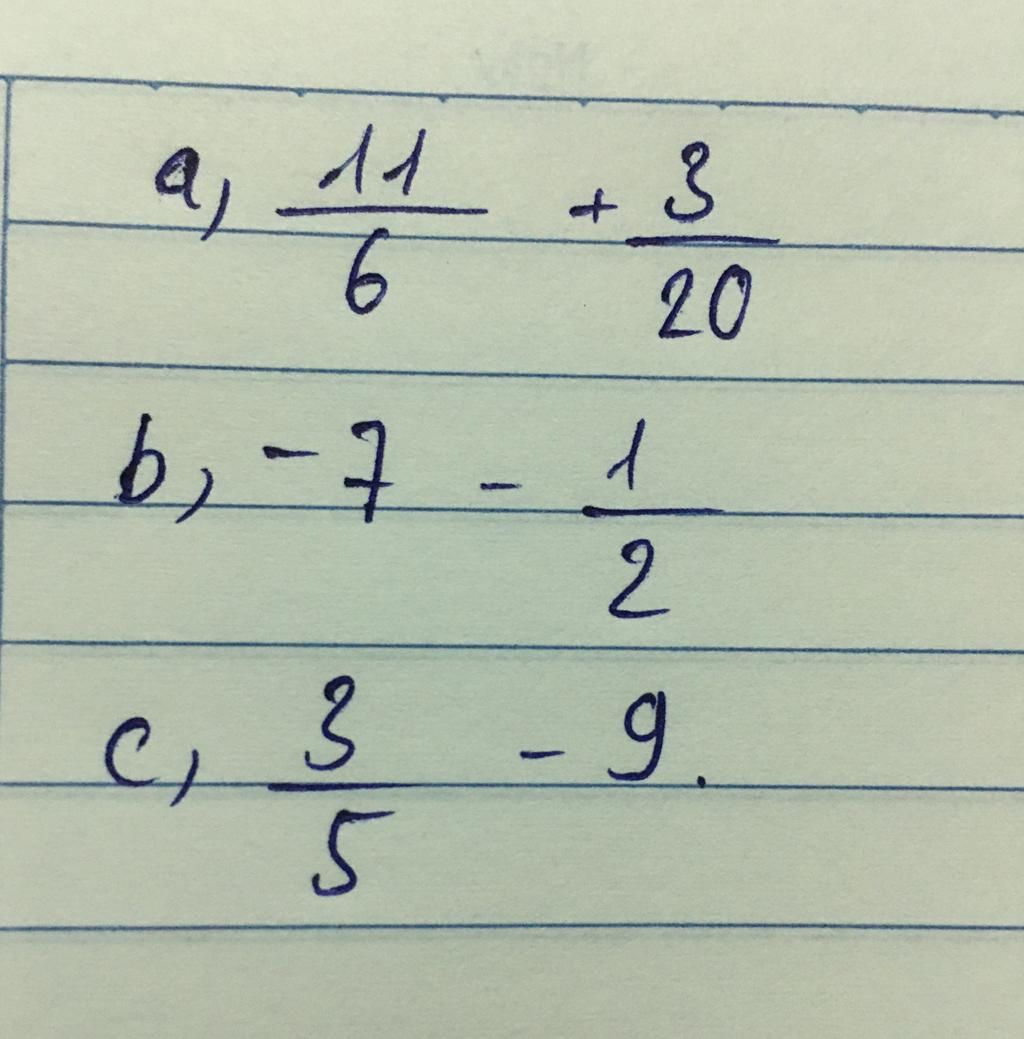 a, 11/6 + 3/20
b, -7 - 1/2
c, 3/5 - 9.